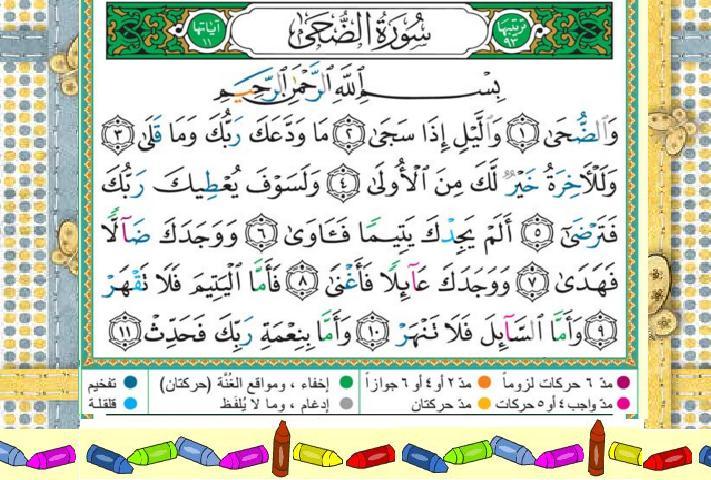 ترتيبها ٩٣ سُورَةُ الضُّحَى آياتها ١١
بِسْمِ ٱللَّهِ ٱلرَّحْمَٰنِ ٱلرَّحِيمِ
وَٱلضُّحَىٰ ١ وَٱلَّيْلِ إِذَا سَجَىٰ ٢ مَا وَدَّعَكَ رَبُّكَ وَمَا قَلَىٰ ٣
وَلَلْأَخِرَةُ خَيْرٌ لَّكَ مِنَ ٱلْأُولَىٰ ٤ وَلَسَوْفَ يُعْطِيكَ رَبُّكَ
فَتَرْضَىٰٓ ٥ أَلَمْ يَجِدْكَ يَتِيمًا فَـَٔاوَىٰ ٦ وَوَجَدَكَ ضَآلًّا
فَهَدَىٰ ٧ وَوَجَدَكَ عَآئِلًا فَأَغْنَىٰ ٨ فَأَمَّا ٱلْيَتِيمَ فَلَا تَقْهَرْ
٩ وَأَمَّا ٱلسَّآئِلَ فَلَا تَنْهَرْ ١٠ وَأَمَّا بِنِعْمَةِ رَبِّكَ فَحَدِّثْ ١١
مدّ ٦ حركات لزوماً مدّ ٢ أو ٤ أو ٦ جوازاً إخفاء ، ومواقع الغُنَّة (حركتان) تفخيم
مدّ واجب ٤ أو ٥ حركات مدّ حركتان إدغام ، وما لا يُلفَظ قلقلة